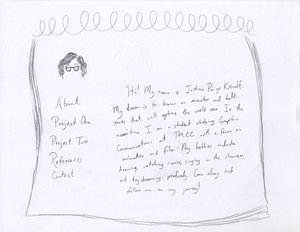 About
Project One
Project Two
References
Contact
Hi! My name is Justine Paige
My dream is to become an animator and tell
stories that will capture the world one. In the
meantime I am a student studying Graphic
Communications at TMCC with a focus on
animation and film. My hobbies include
drawing, watching movies singing in the shower,
and day dreaming profusely. Come along and
follow me on my journey!